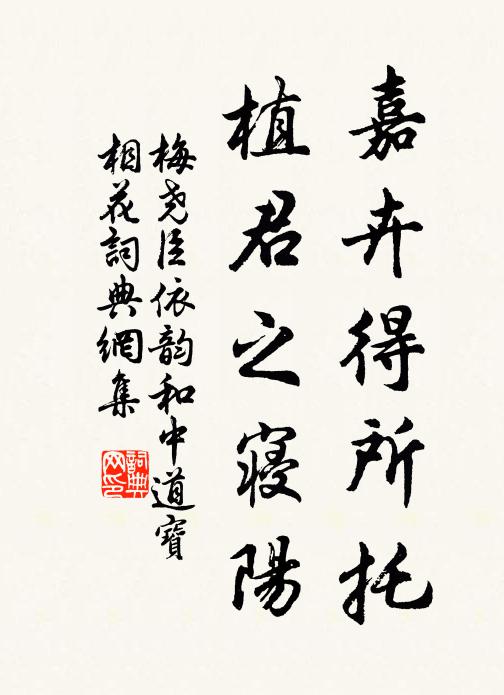 嘉卉得所托
植君之寝陽
梅尧臣依韵和中道寶
相花詞典網集
詞典网印